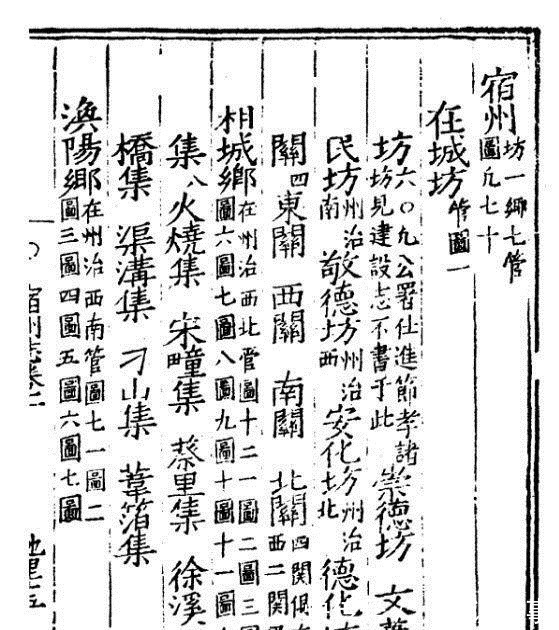 宿州坊一鄉七管圖凡七十
在城坊管圖一
坊六〇九公署仕進節孝諸坊見建設志不書于此 崇德坊 文
民坊州治南 敬德坊州治西 安化坊州治北 德化
關四 東關 西關 南關 北關四關俱 西二關
相城鄉在州治西北管圖十二一圖二圖三圖六圖七圖八圖九圖十圖十一圖
集八 火燒集 宋疃集 蔡里集 徐溪
橋集 渠溝集 刁山集 葦箔集
渙陽鄉在州治西南管圖七一圖二圖三圖四圖五圖六圖七圖
宿州志卷二 地里五